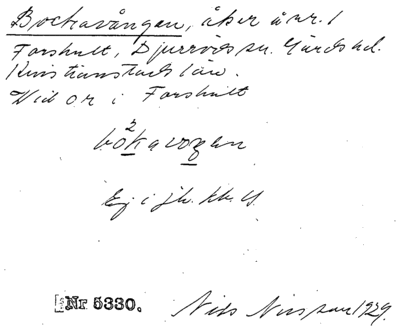 Bockavången, åker å nr. 1
Forshult, Djurröds sn. Gärds hd.
Kristianstads län.
Vid or i Forshult
bo²kavoŋen
Ej i jb. kb. 
Nr 5330.
Nils Nilsson 1929.